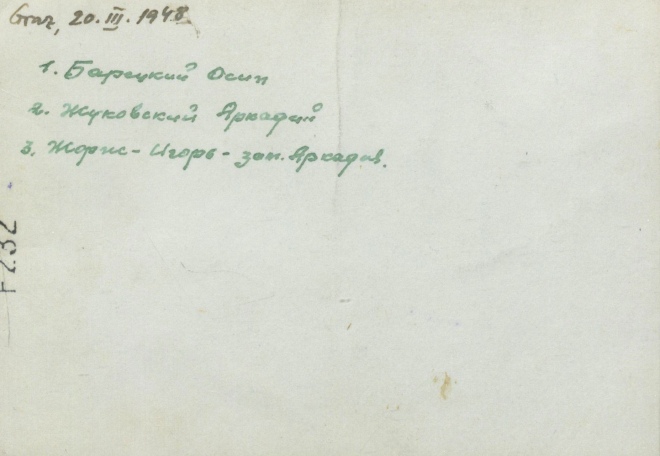 Graz, 20. III. 1948
1. Барецкий Осип
2. Жуковский Аркадий
3. Жорис - Игорь - зап. Аркадів.
F2.32